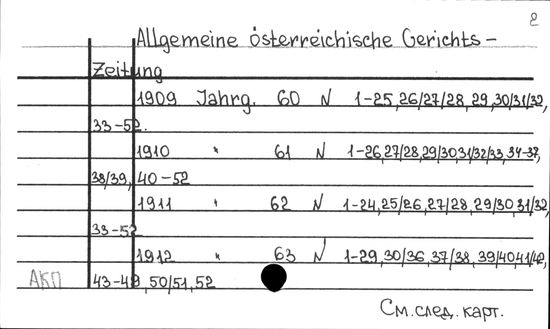 2
Allgemeine österreichische Gerichts-
Zeitung
1909 Jahrg. 60 N 1-25,26/27/28,29,30/31/32,
33-52.
1910 " 61 N 1-26,27/28,29/30,31/32/33,34-37,
38/39,40-52
1911 " 62 N 1-24,25/26,27/28,29/30,31/32,
33-52
1912 " 63 N 1-29,30/36,37/38,39/40,41/42,
АКП 43-49,50/51,52
См.след.карт.